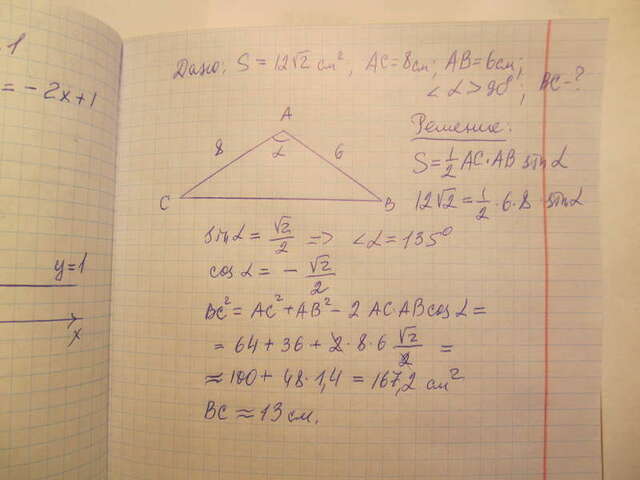 . 1
= -2x+1
y=1
x
Дано: S = 12√2 см², AC=8см; AB=6см;
∠α>90°; BC-?
A
8
α
6
C
B
Решение:
S=½ AC·AB sinα
12√2=½·6·8·sinα
sinα = √2/2 => ∠α=135°
cosα = -√2/2
BC² = AC²+AB²-2AC·ABcosα =
= 64+36+2·8·6 √2/2 =
≈ 100+48·1,4 = 167,2 см²
BC ≈ 13 см.